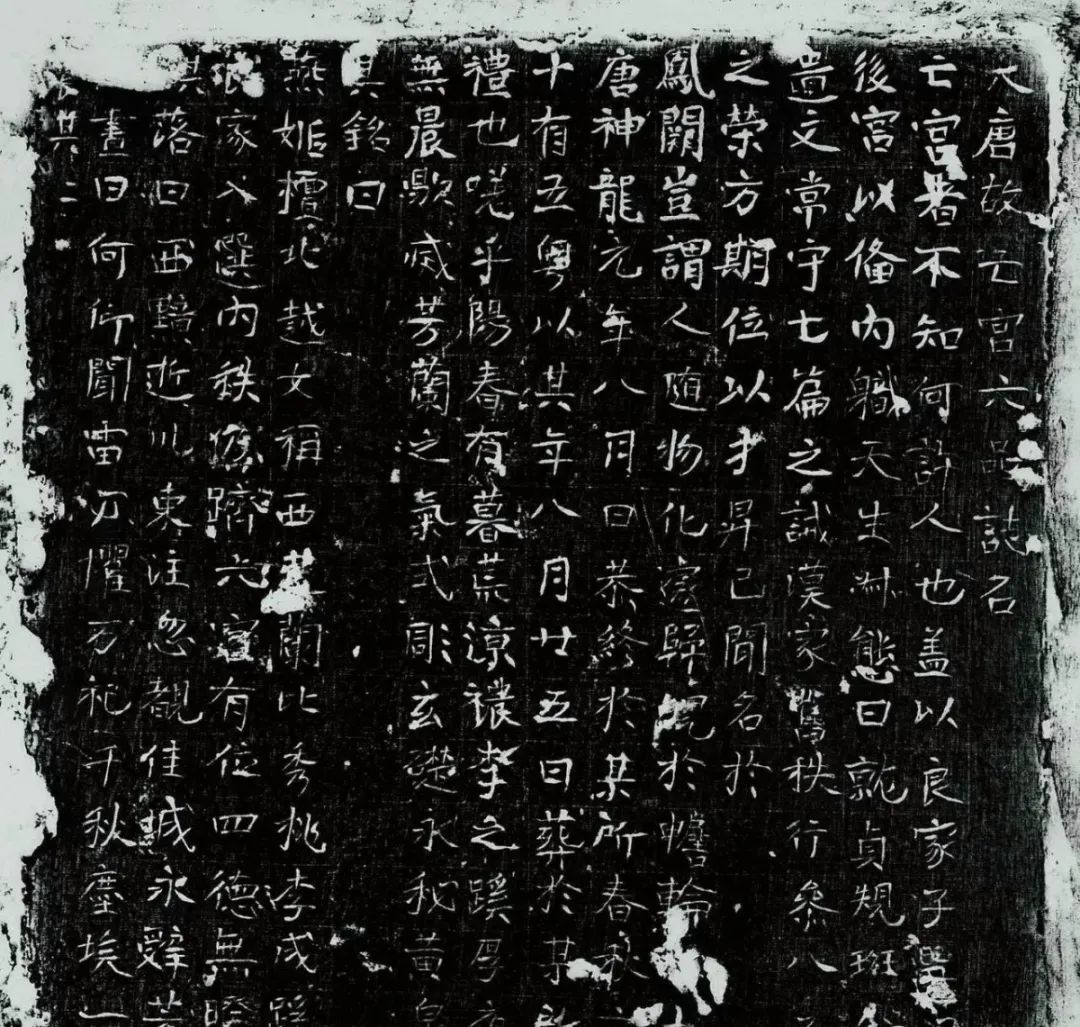 大唐故亡宮六品誌石
亡宮者不知何許人也盖以良家子
後宮以俻內軄天生淋態日就貞規班
遺文常守七篇之誡漢家舊秩行參八
之榮方期位以才昇已聞名於
鳳闕豈謂人隨物化窆歸於幨輪
唐神龍元年八月日恭終於某所春秋
十有五粵以其年八月廿五日葬於某所
禮也嗟乎陽春有暮荒涼穠李之蹊厚
無晨歇滅芳蘭之氣式彫玄礎永秘黃泉
其銘曰
燕姬檀北越女稱西蘭比秀桃李成蹊
良家入選內秩攸躋六宮有位四德無
其落日西黯逝川東注忽覩佳城永辭
晝日何所聞雷乃懼万祀千秋塵埃一
其二